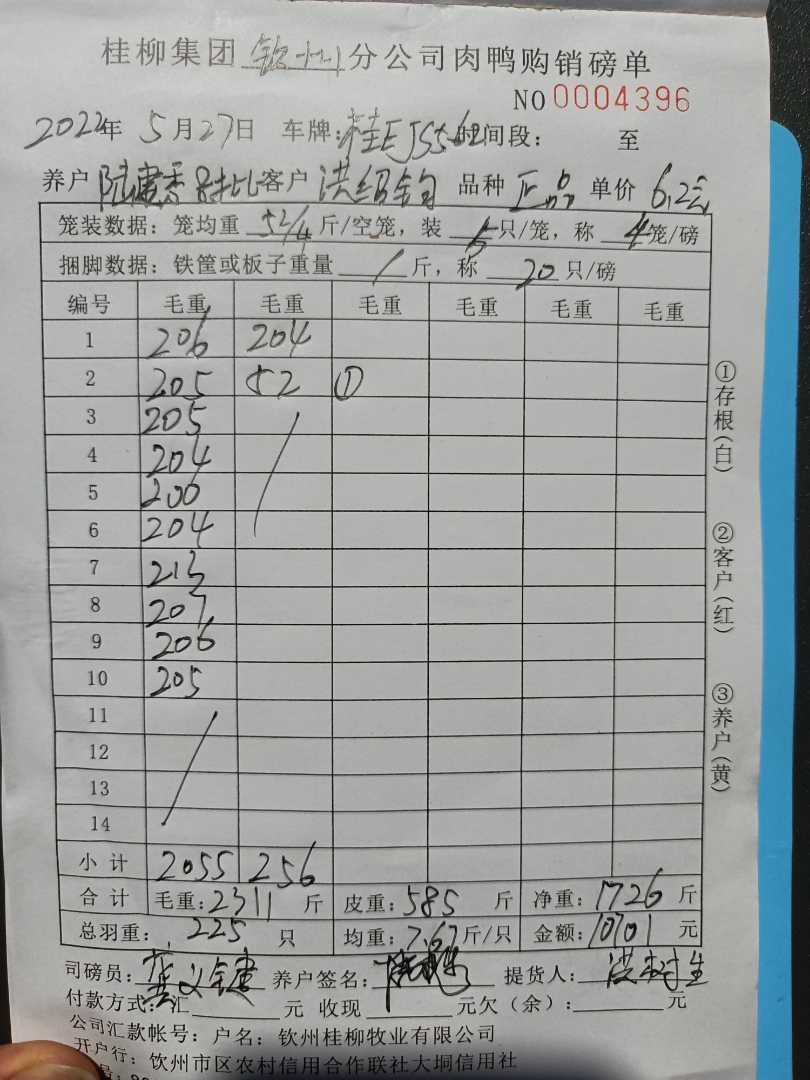 桂柳集团 钦州 分公司肉鸭购销磅单
NO 0004396
2022年 5月27日 车牌: 桂EJS562 时间段: 至
养户 陆建香 8批 客户 洪绍 品种 正品 单价 6.2元
笼装数据: 笼均重 52/4 斤/空笼, 装 5 只/笼, 称 4 笼/磅
捆脚数据: 铁筐或板子重量 1 斤, 称 20 只/磅
编号 毛重 毛重 毛重 毛重 毛重 毛重
1 206 204
2 205 52 ①
3 205
4 204
5 200
6 204
7 213
8 207
9 206
10 205
11
12
13
14
小计 2055 256
合计 毛重: 2311 斤 皮重: 585 斤 净重: 1726 斤
总羽重: 225 只 均重: 7.67 斤/只 金额: 10701 元
司磅员: 养户签名: 提货人: 洪
付款方式: 汇 元 收现 元欠(余): 元
公司汇款帐号: 户名: 钦州桂柳牧业有限公司
开户行: 饮州市区农村信用合作联社大垌信用社
①存根(白)
②客户(红)
③养户(黄)